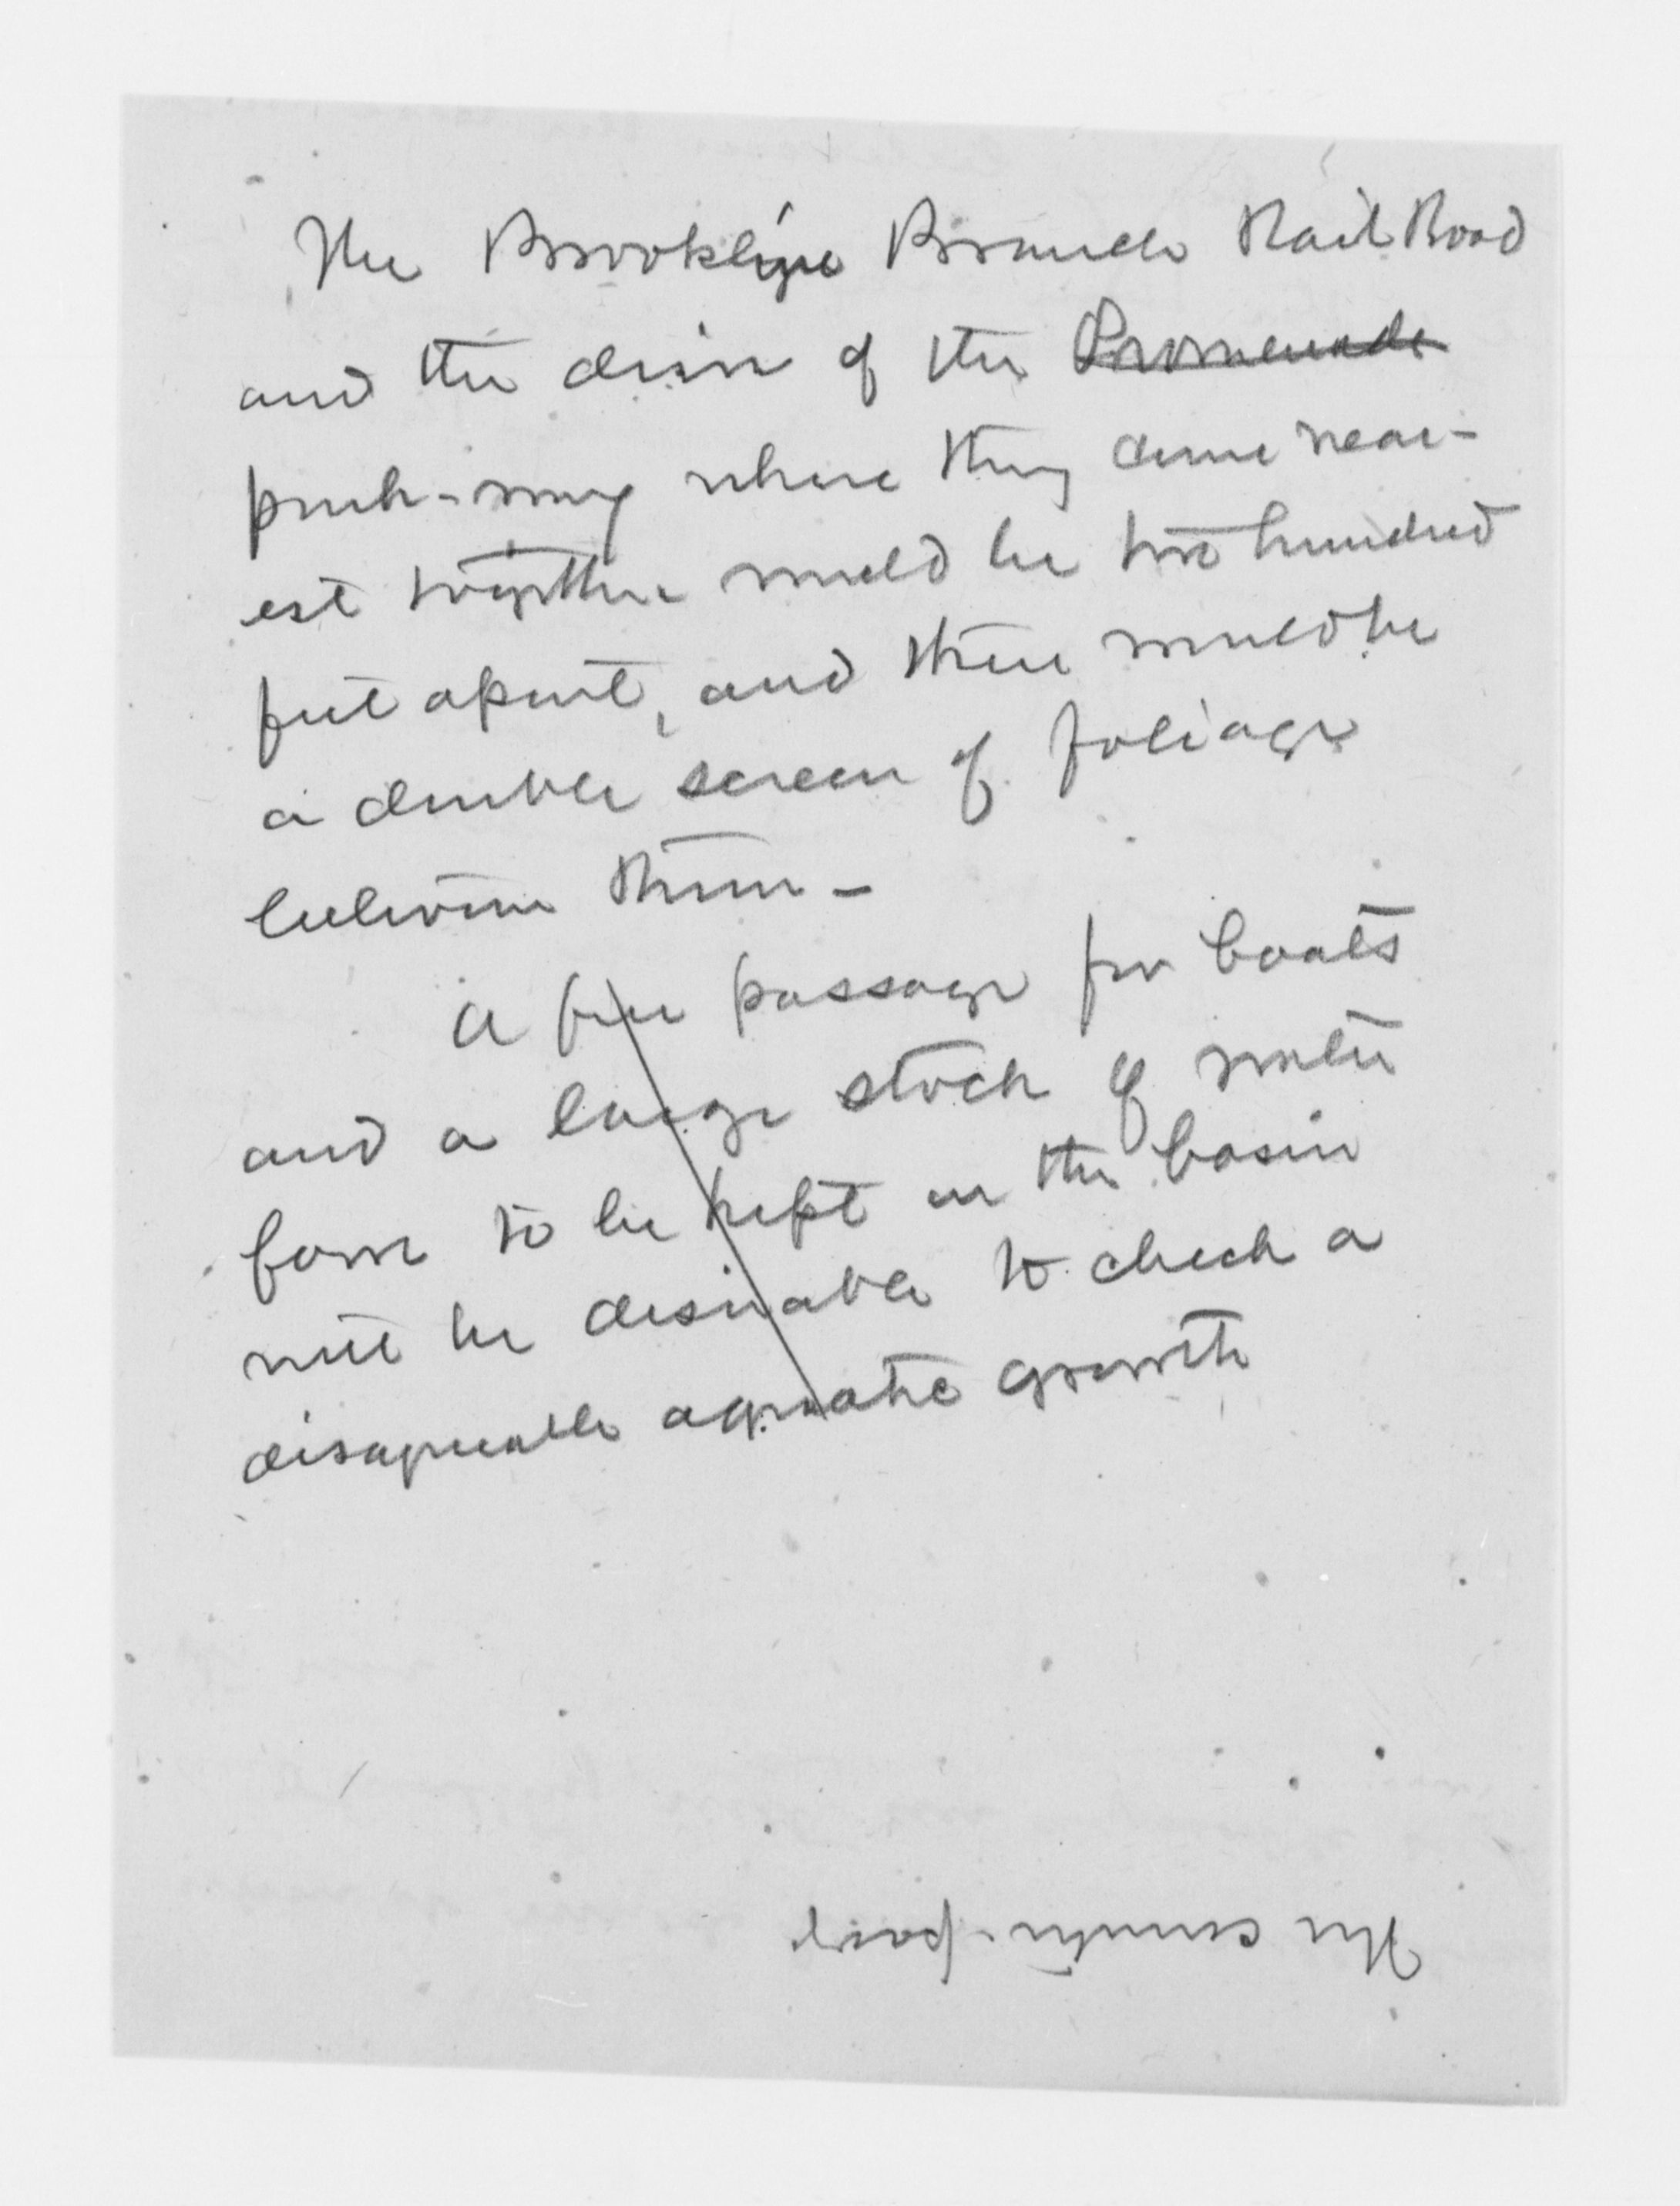 The Brookline Branch Rail Road
and the drive of the Promenade
park-way where they come near-
est together would be two hundred
feet apart, and there would be
a double screen of foliage
between them -
A free passage for boats
and a large stock of water
fowl to be kept in the basin
will be desirable to check a
disagreeable aquatic growth
The